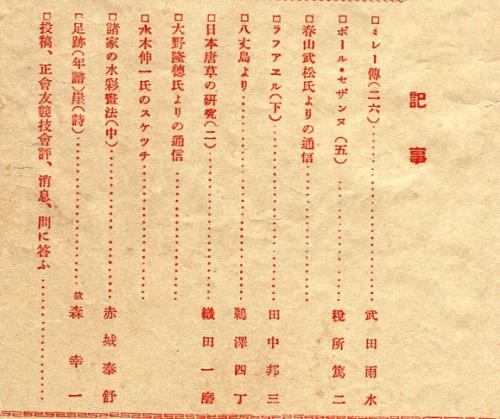 記事
□ミレー傳(二六)……………………武田雨水
□ポール・セザンヌ(五)……………税所篤二
□春山武松氏よりの通信……………………
□ラフアエル(下)……………………田中邦三
□八丈島より…………………………鵜澤四丁
□日本唐草の研究(二)………………織田一磨
□大野隆德氏よりの通信……………………
□水木伸一氏のスケッチ……………………
□諸家の水彩畫法(中)………………赤城泰舒
□足跡(年譜)崖(詩)…………………故森幸一
□投稿、正會友競技會評、消息、問に答ふ……………………